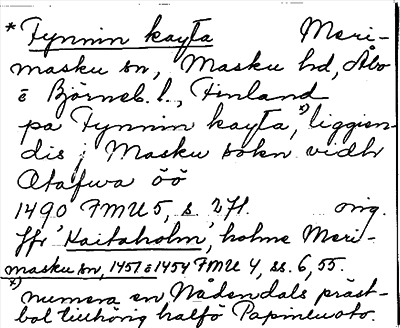 * Fynnin kayta Meri-
masku sn, Masku hd, Åbo
o Björneb. l., Finland
pa Fynnin kayta, x) liggien-
dis j Masku sokn vidh
Otafwa öö
1490 FMU 5, s. orig.
Jfr 'Kaitaholm', holme Meri-
masku sn, 1451 o 1454 FMU 4, ss. 6, 55.
x) numera en, Nådendals präst-
bol tillhörig halfö Papinluoto.